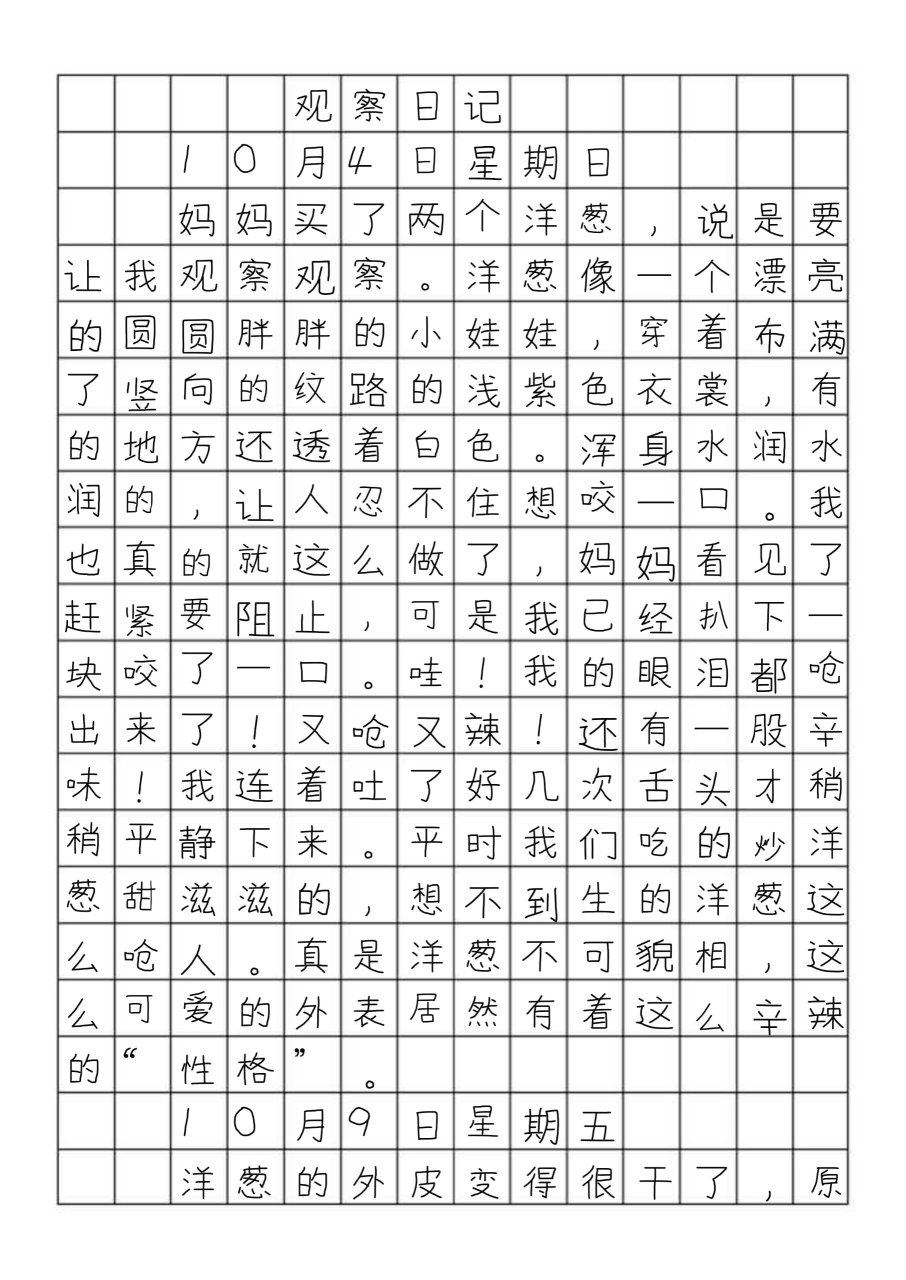 观察日记
10月4日星期日
妈妈买了两个洋葱，说是要
让我观察观察。洋葱像一个漂亮
的圆圆胖胖的小娃娃，穿着布满
了竖向的纹路的浅紫色衣裳，有
的地方还透着白色。浑身水润水
润的，让人忍不住想咬一口。我
也真的就这么做了，妈妈看见了
赶紧要阻止，可是我已经扒下一
块咬了一口。哇！我的眼泪都呛
出来了！又呛又辣！还有一股辛
味！我连着吐了好几次舌头才稍
稍平静下来。平时我们吃的炒洋
葱甜滋滋的，想不到生的洋葱这
么呛人。真是洋葱不可貌相，这
么可爱的外表居然有着这么辛辣
的“性格”。
10月9日星期五
洋葱的外皮变得很干了，原